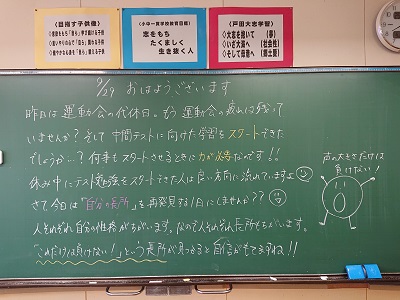 <目指す子供像>
<小中一貫学校教育目標>
志をもち
たくましく
生き抜く人
<戸田大志学習>
◇大志を抱いて (夢)
◇いざ大海へ (社会性)
◇そして母港へ (郷土愛)
9/29 おはようございます
昨日は運動会の代休日。もう運動会の疲れは残って
いませんか?そして中間テストに向けた学習をスタートできた
でしょうか…?何事もスタートさせるときに力が必要なんです!!
休み中にテスト勉強をスタートできた人は良い方向に流れていますよ
さて今日は「自分の長所」を再発見する1日にしませんか??
人それぞれ自分の性格がちがいます。なので人それぞれ長所もちがいます。
「これだけは負けない!」という長所が見つかると自信がもてますね!!
声の大きさだけは
負けない!